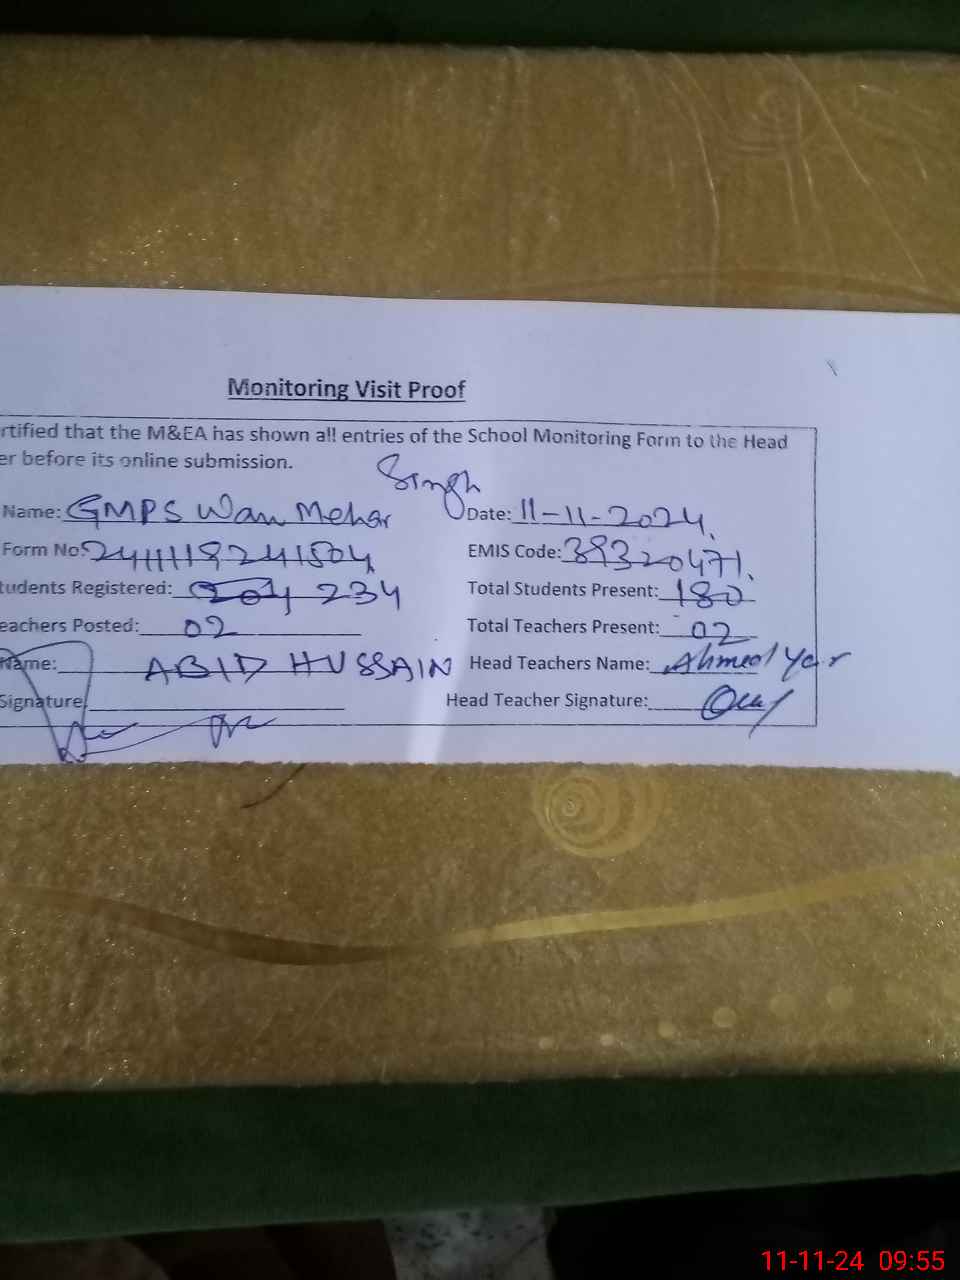 Monitoring Visit Proof
rtified that the M&EA has shown all entries of the School Monitoring Form to the Head
er before its online submission.
Singh
Name: GMPS Wan Mehar Date: 11-11-2024.
Form No: 2411118241504 EMIS Code: 39320471.
tudents Registered: 234 Total Students Present: 180
eachers Posted: 02 Total Teachers Present: 02
Name: ABID HUSSAIN Head Teachers Name: Ahmed Yar
Signature Head Teacher Signature:
11-11-24 09:55